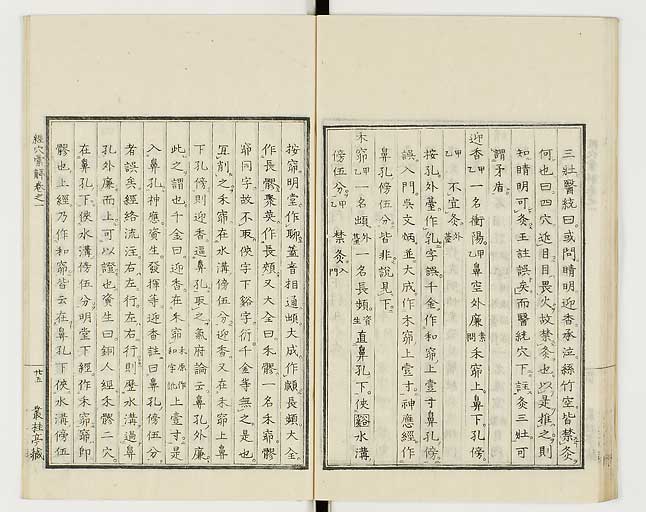 三壯醫統曰或問睛明迎香承泣絲竹空皆禁灸
何也曰四穴近目目畏火故禁灸也以是推之則
知睛明可灸王註誤矣而醫統穴下註灸三壯可
謂矛盾
迎香甲乙一名衝陽甲乙鼻空外廉素問禾窌上鼻下孔傍
甲乙不宜灸外臺
按孔外臺作乳字誤千金作和窌上壹寸鼻孔傍
誤入門吳文炳並大成作禾窌上壹寸神應經作
鼻孔傍伍分皆非說見下
禾窌甲乙一名䪼外臺一名長頻資生直鼻孔下俠谿水溝
傍伍分甲乙禁灸入門
按窌明堂作聊蓋音相通䪼大成作顱長頻大全
作長髎聚英作長頰又大全曰禾髎一名禾窌髎
窌同字故不取俠字下谿字衍千金等無之是也
宜削之禾窌在水溝傍伍分迎香又在禾窌上鼻
下孔傍則迎香逼鼻孔取之氣府論云鼻孔外廉
此之謂也千金曰迎香在禾窌禾原作和字訛上壹寸是
入鼻孔神應資生發揮等迎香註曰鼻孔傍伍分
者誤矣經絡流注右左行左右行則歷水溝過鼻
孔外廉而上可以證也資生曰銅人經禾髎二穴
在鼻孔下俠水溝傍伍分明堂下經作禾窌窌即
髎也上經乃作和窌皆云在鼻孔下俠水溝傍伍
經穴彙解卷之一
廿五
叢桂亭藏